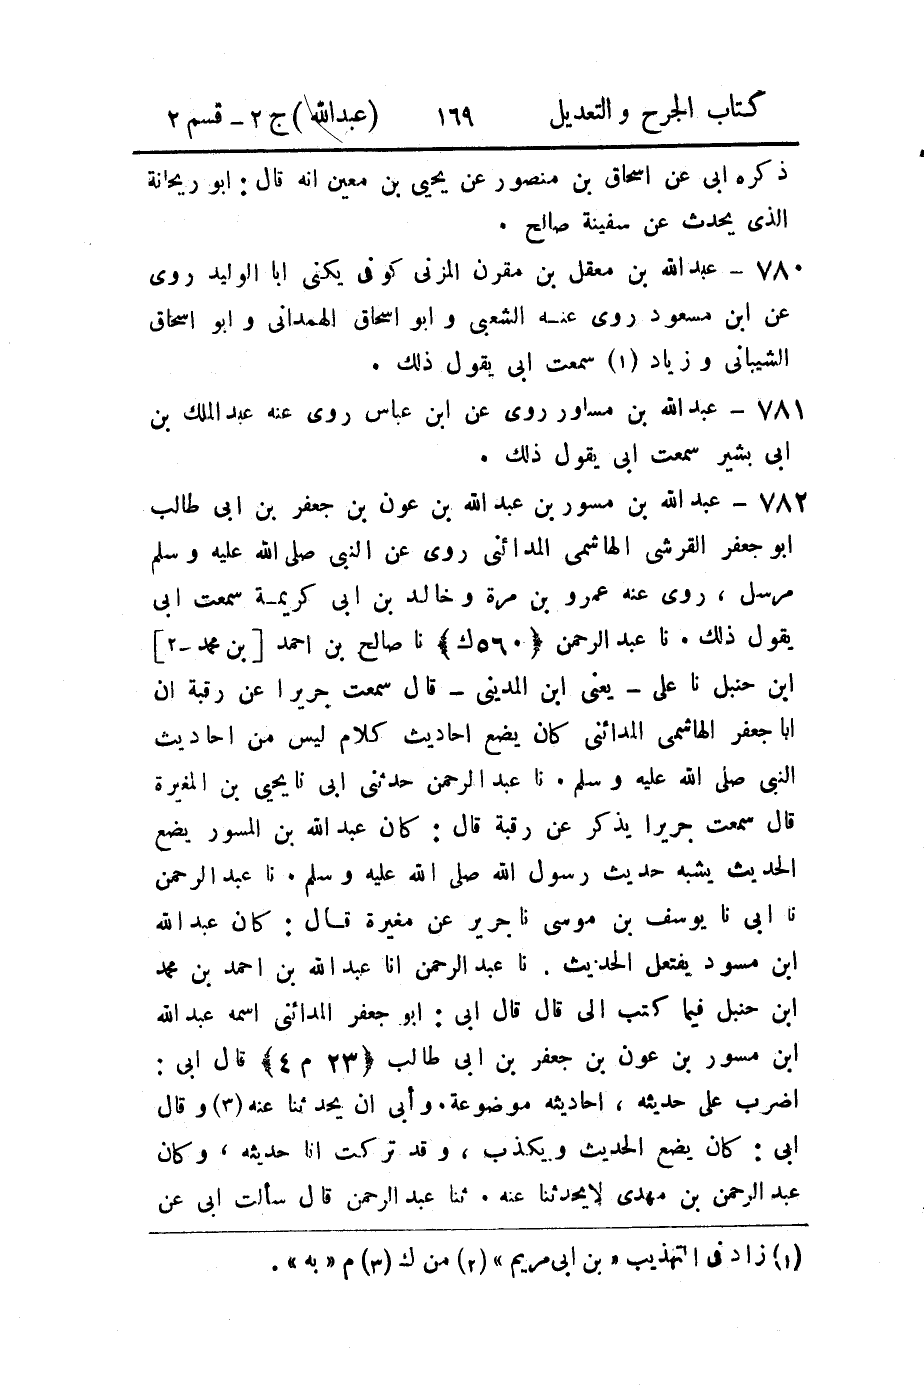 كتاب الجرح والتعديل ١٦٩ (عبدالله) ج ٢ - قسم ٢
ذكره ابى عن اسحاق بن منصور عن يحيى بن معين انه قال : ابو ريحانة
الذى يحدث عن سفينة صالح .
٧٨٠ - عبد الله بن معقل بن مقرن المزنى كوفى يكنى ابا الوليد روى
عن ابن مسعود روى عنه الشعبى و ابو اسحاق الهمدانى و ابو اسحاق
الشيبانى و زياد (١) سمعت ابى يقول ذلك .
٧٨١ - عبد الله بن مساور روى عن ابن عباس روى عنه عبد الملك بن
ابى بشير سمعت ابى يقول ذلك .
٧٨٢ - عبد الله بن مسور بن عبد الله بن عون بن جعفر بن ابى طالب
ابو جعفر القرشى الهاشمى المدائنى روى عن النبى صلى الله عليه و سلم
مرسل ، روى عنه عمرو بن مرة و خالد بن ابى كريمة سمعت ابى
يقول ذلك . نا عبد الرحمن ﴿٥٦٠ك﴾ نا صالح بن احمد [بن محمد -٢]
ابن حنبل نا على - يعنى ابن المدينى - قال سمعت جريرا عن رقبة ان
ابا جعفر الهاشمى المدائنى كان يضع احاديث كلام ليس من احاديث
النبى صلى الله عليه و سلم . نا عبد الرحمن حدثنى ابى نا يحيى بن المغيرة
قال سمعت جريرا يذكر عن رقبة قال : كان عبد الله بن المسور يضع
الحديث يشبه حديث رسول الله صلى الله عليه و سلم . نا عبد الرحمن
نا ابى نا يوسف بن موسى نا جرير عن مغيرة قال : كان عبد الله
ابن مسود يفتعل الحديث . نا عبد الرحمن انا عبد الله بن احمد بن محمد
ابن حنبل فيما كتب الى قال قال ابى : ابو جعفر المدائنى اسمه عبد الله
ابن مسور بن عون بن جعفر بن ابى طالب ﴿٢٣ م ٤﴾ قال ابى :
اضرب على حديثه ، احاديثه موضوعة . و أبى ان يحدثنا عنه (٣) و قال
ابى : كان يضع الحديث و يكذب ، و قد تركت انا حديثه ، و كان
عبد الرحمن بن مهدى لا يحدثنا عنه . ثنا عبد الرحمن قال سألت ابى عن
(١) زاد فى التهذيب « بن ابى مريم » (٢) من ك (٣) م « به » .